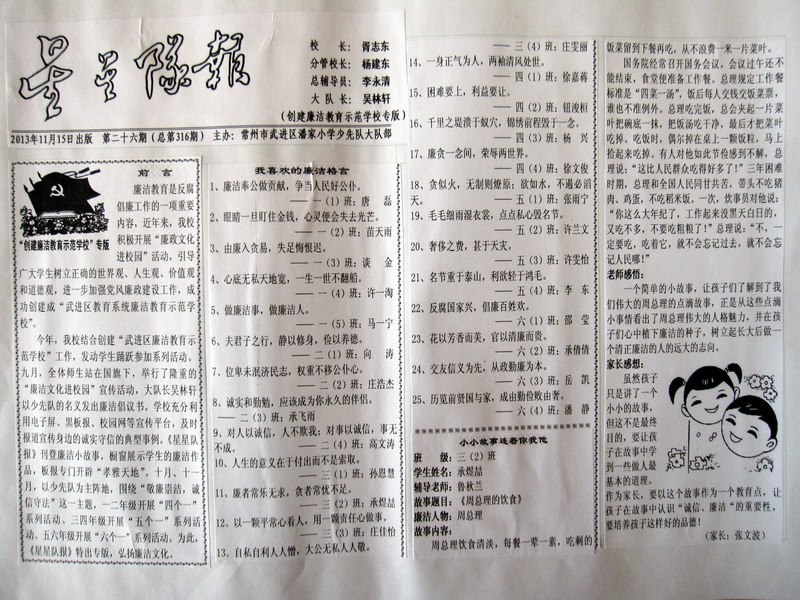 星星隊報
校 长：胥志东
分管校长：杨建东
总辅导员：李永清
大 队 长：吴林轩
（创建廉洁教育示范学校专版）
2013年11月15日出版 第二十六期（总第316期） 主办：常州市武进区潘家小学少先队大队部
前 言
廉洁教育是反腐
倡廉工作的一项重要
内容，近年来，我校
积极开展“廉政文化
进校园”活动，引导
“创建廉洁教育示范学校”专版
广大学生树立正确的世界观、人生观、价值观
和道德观，进一步加强党风廉政建设工作，成
功创建成“武进区教育系统廉洁教育示范学
校”。
今年，我校结合创建“武进区廉洁教育示
范学校”工作，发动学生踊跃参加系列活动。
九月，全体师生站在国旗下，举行了隆重的
“廉洁文化进校园”宣传活动，大队长吴林轩
以少先队的名义发出廉洁倡议书。学校充分利
用电子屏、黑板报、校园网等宣传平台，及时
报道宣传身边的诚实守信的典型事例。《星星队
报》刊登廉洁小故事，橱窗展示学生的廉洁作
品，板报专门开辟“孝雅天地”。十月、十一
月，以少先队为主阵地，围绕“敬廉崇洁，诚
信守法”这一主题，一二年级开展“四个一”
系列活动、三四年级开展“五个一”系列活
动、五六年级开展“六个一”系列活动。为此，
《星星队报》特出专版，弘扬廉洁文化。
我喜欢的廉洁格言
1、廉洁奉公做贡献，争当人民好公仆。
—— 一（1）班：唐 磊
2、眼睛一旦盯住金钱，心灵便会失去光芒。
—— 一（2）班：苗天雨
3、由廉入贪易，失足悔恨迟。
—— 一（3）班：谈 金
4、心底无私天地宽，一生一世不翻船。
—— 一（4）班：许一淘
5、做廉洁事，做廉洁人。
—— 一（5）班：马一宁
6、夫君子之行，静以修身，俭以养德。
—— 二（1）班：向 涛
7、位卑未泯济民志，权重不移公仆心。
—— 二（2）班：庄浩杰
8、诚实和勤勉，应该成为你永久的伴侣。
—— 二（3）班：承飞雨
9、对人以诚信，人不欺我；对事以诚信，事无
不成。 —— 二（4）班：高文涛
10、人生的意义在于付出而不是索取。
—— 三（1）班：孙思慧
11、廉者常乐无求，贪者常忧不足。
—— 三（2）班：承煜喆
12、以一颗平常心看人，用一颗责任心做事。
—— 三（3）班：庄佳怡
13、自私自利人人憎，大公无私人人敬。
—— 三（4）班：庄雯丽
14、一身正气为人，两袖清风处世。
—— 四（1）班：徐嘉蒋
15、困难要上，利益要让。
—— 四（2）班：钮浚桓
16、千里之堤溃于蚁穴，锦绣前程毁于一念。
—— 四（3）班：杨 兴
17、廉贪一念间，荣辱两世界。
—— 四（4）班：徐文俊
18、贪似火，无制则燎原；欲如水，不遏必滔
天。 —— 五（1）班：张雨宁
19、毛毛细雨湿衣裳，点点私心毁名节。
—— 五（2）班：许兰文
20、奢侈之费，甚于天灾。
—— 五（3）班：许雯怡
21、名节重于泰山，利欲轻于鸿毛。
—— 五（4）班：李 东
22、反腐国家兴，倡廉百姓欢。
—— 六（1）班：邵 莹
23、花以芳香而美，官以清廉而贵。
—— 六（2）班：承倩倩
24、交友信义为先，从政勤廉为本。
—— 六（3）班：岳 凯
25、历览前贤国与家，成由勤俭败由奢。
—— 六（4）班：潘 静
小小故事连着你我他
班 级：三（2）班
学生姓名：承煜喆
辅导老师：鲁秋兰
故事题目：《周总理的饮食》
廉洁人物：周总理
故事内容：
周总理饮食清淡，每餐一荤一素，吃剩的
饭菜留到下餐再吃，从不浪费一米一片菜叶。
国务院经常召开国务会议，会议过午还不
能结束，食堂便准备工作餐。总理规定工作餐
标准是“四菜一汤”，饭后每人交钱交饭菜票，
谁也不准例外。总理吃完饭，总会夹起一片菜
叶把碗底一抹，把饭汤吃干净，最后才把菜叶
吃掉。吃饭时，偶尔掉在桌上一颗饭粒，马上
拾起来吃掉。有人对他如此节俭感到不解，总
理说：“这比人民群众吃得好多了！”三年困难
时期，总理和全国人民同甘共苦，带头不吃猪
肉、鸡蛋，不吃稻米饭。一次，炊事员对他说：
“你这么大年纪了，工作起来没黑天白日的，
又吃不多，不要吃粗粮了！”总理说：“不，一
定要吃，吃着它，就不会忘记过去，就不会忘
记人民哪！”
老师感悟：
一个简单的小故事，让孩子们了解到了我
们伟大的周总理的点滴故事，正是从这些点滴
小事情看出了周总理伟大的人格魅力，并在孩
子们心中植下廉洁的种子，树立起长大后做一
个清正廉洁的人的远大的志向。
家长感想：
虽然孩子
只是讲了一个
小小的故事，
但这不是最终
目的，要让孩
子在故事中学
到一些做人最
基本的道理。
作为家长，要以这个故事作为一个教育点，让
孩子在故事中认识“诚信、廉洁”的重要性，
要培养孩子这样好的品德！
（家长：张文波）